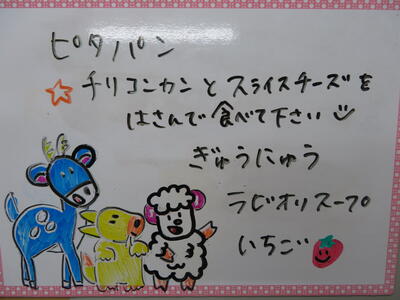 ピタパン
☆チリコンカンとスライスチーズを
はさんで食べて下さい
ぎゅうにゅう
ラビオリスープ
いちご